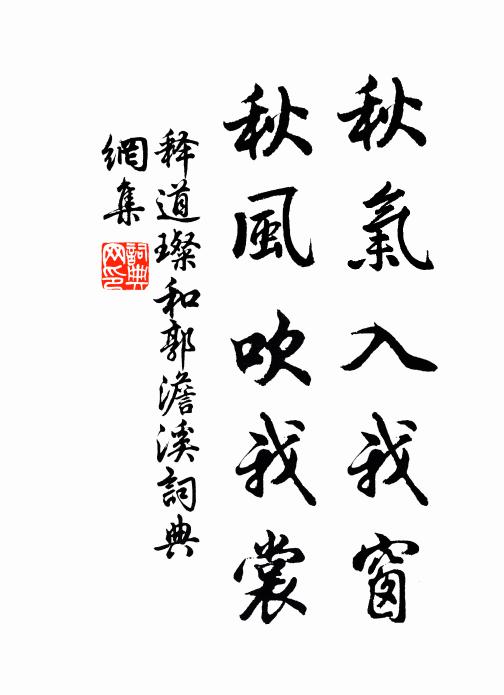 秋氣入我窗
秋風吹我裳
释道璨和郭澹溪詞典
網集
詞典網印